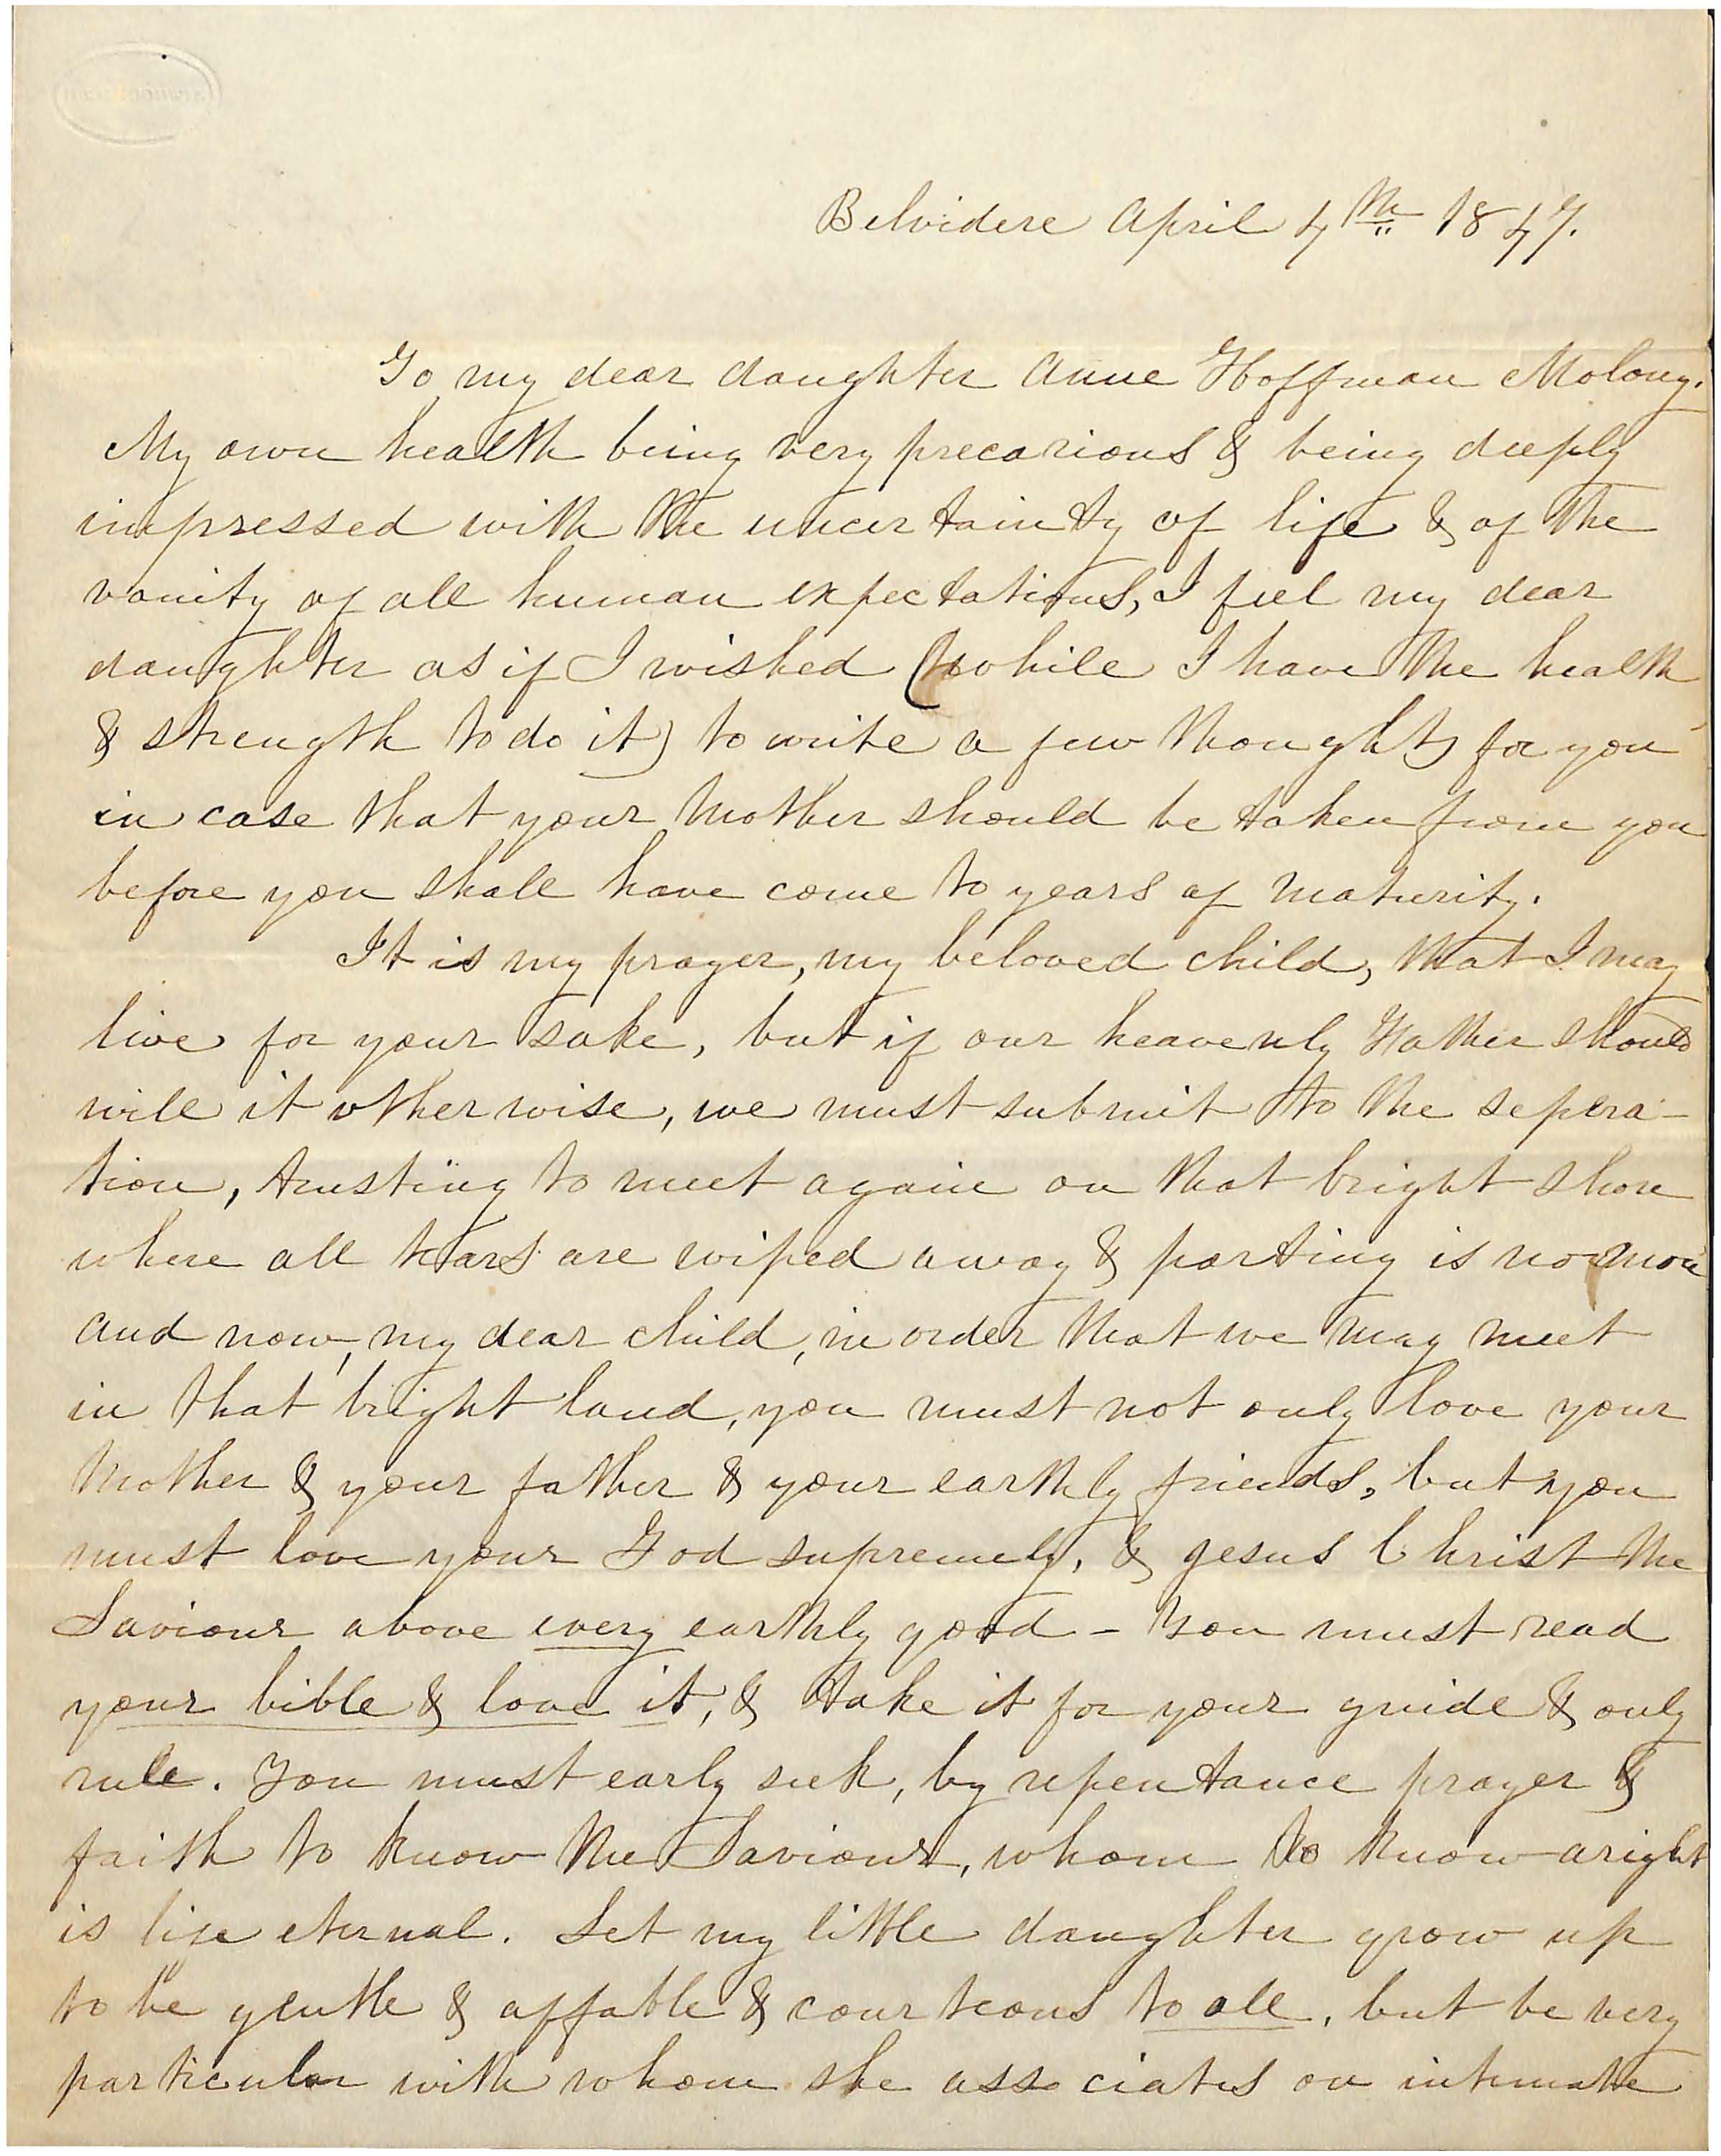 Belvidere April 4th 1847.
To my dear daughter Anne Hoffman Molony.
My own health being very precarious & being deeply
impressed with the uncertainty of life & of the
vanity of all human expectations, I feel my dear
daughter as if I wished (while I have the health
& strength to do it) to write a few thoughts for you
in case that your Mother should be taken from you
before you shall have come to years of maturity.
It is my prayer, my beloved child, that I may
live for your sake, but if our heavenly Father should
will it otherwise, we must submit to the sepera-
tion, trusting to meet again on that bright shore
where all tears are wiped away & parting is no more
And now, my dear child, in order that we may meet
in that bright land, you must not only love your
Mother & your father & your earthly friends, but you
must love your God supremely, & Jesus Christ the
Saviour above every earthly good - You must read
your bible & love it, & take it for your guide & only
rule. You must early seek, by repentance prayer &
faith to know the Saviour, whom to know aright
is life eternal. Let my little daughter grow up
to be gentle & affable & courteous to all, but be very
particular with whom she associates on intimate